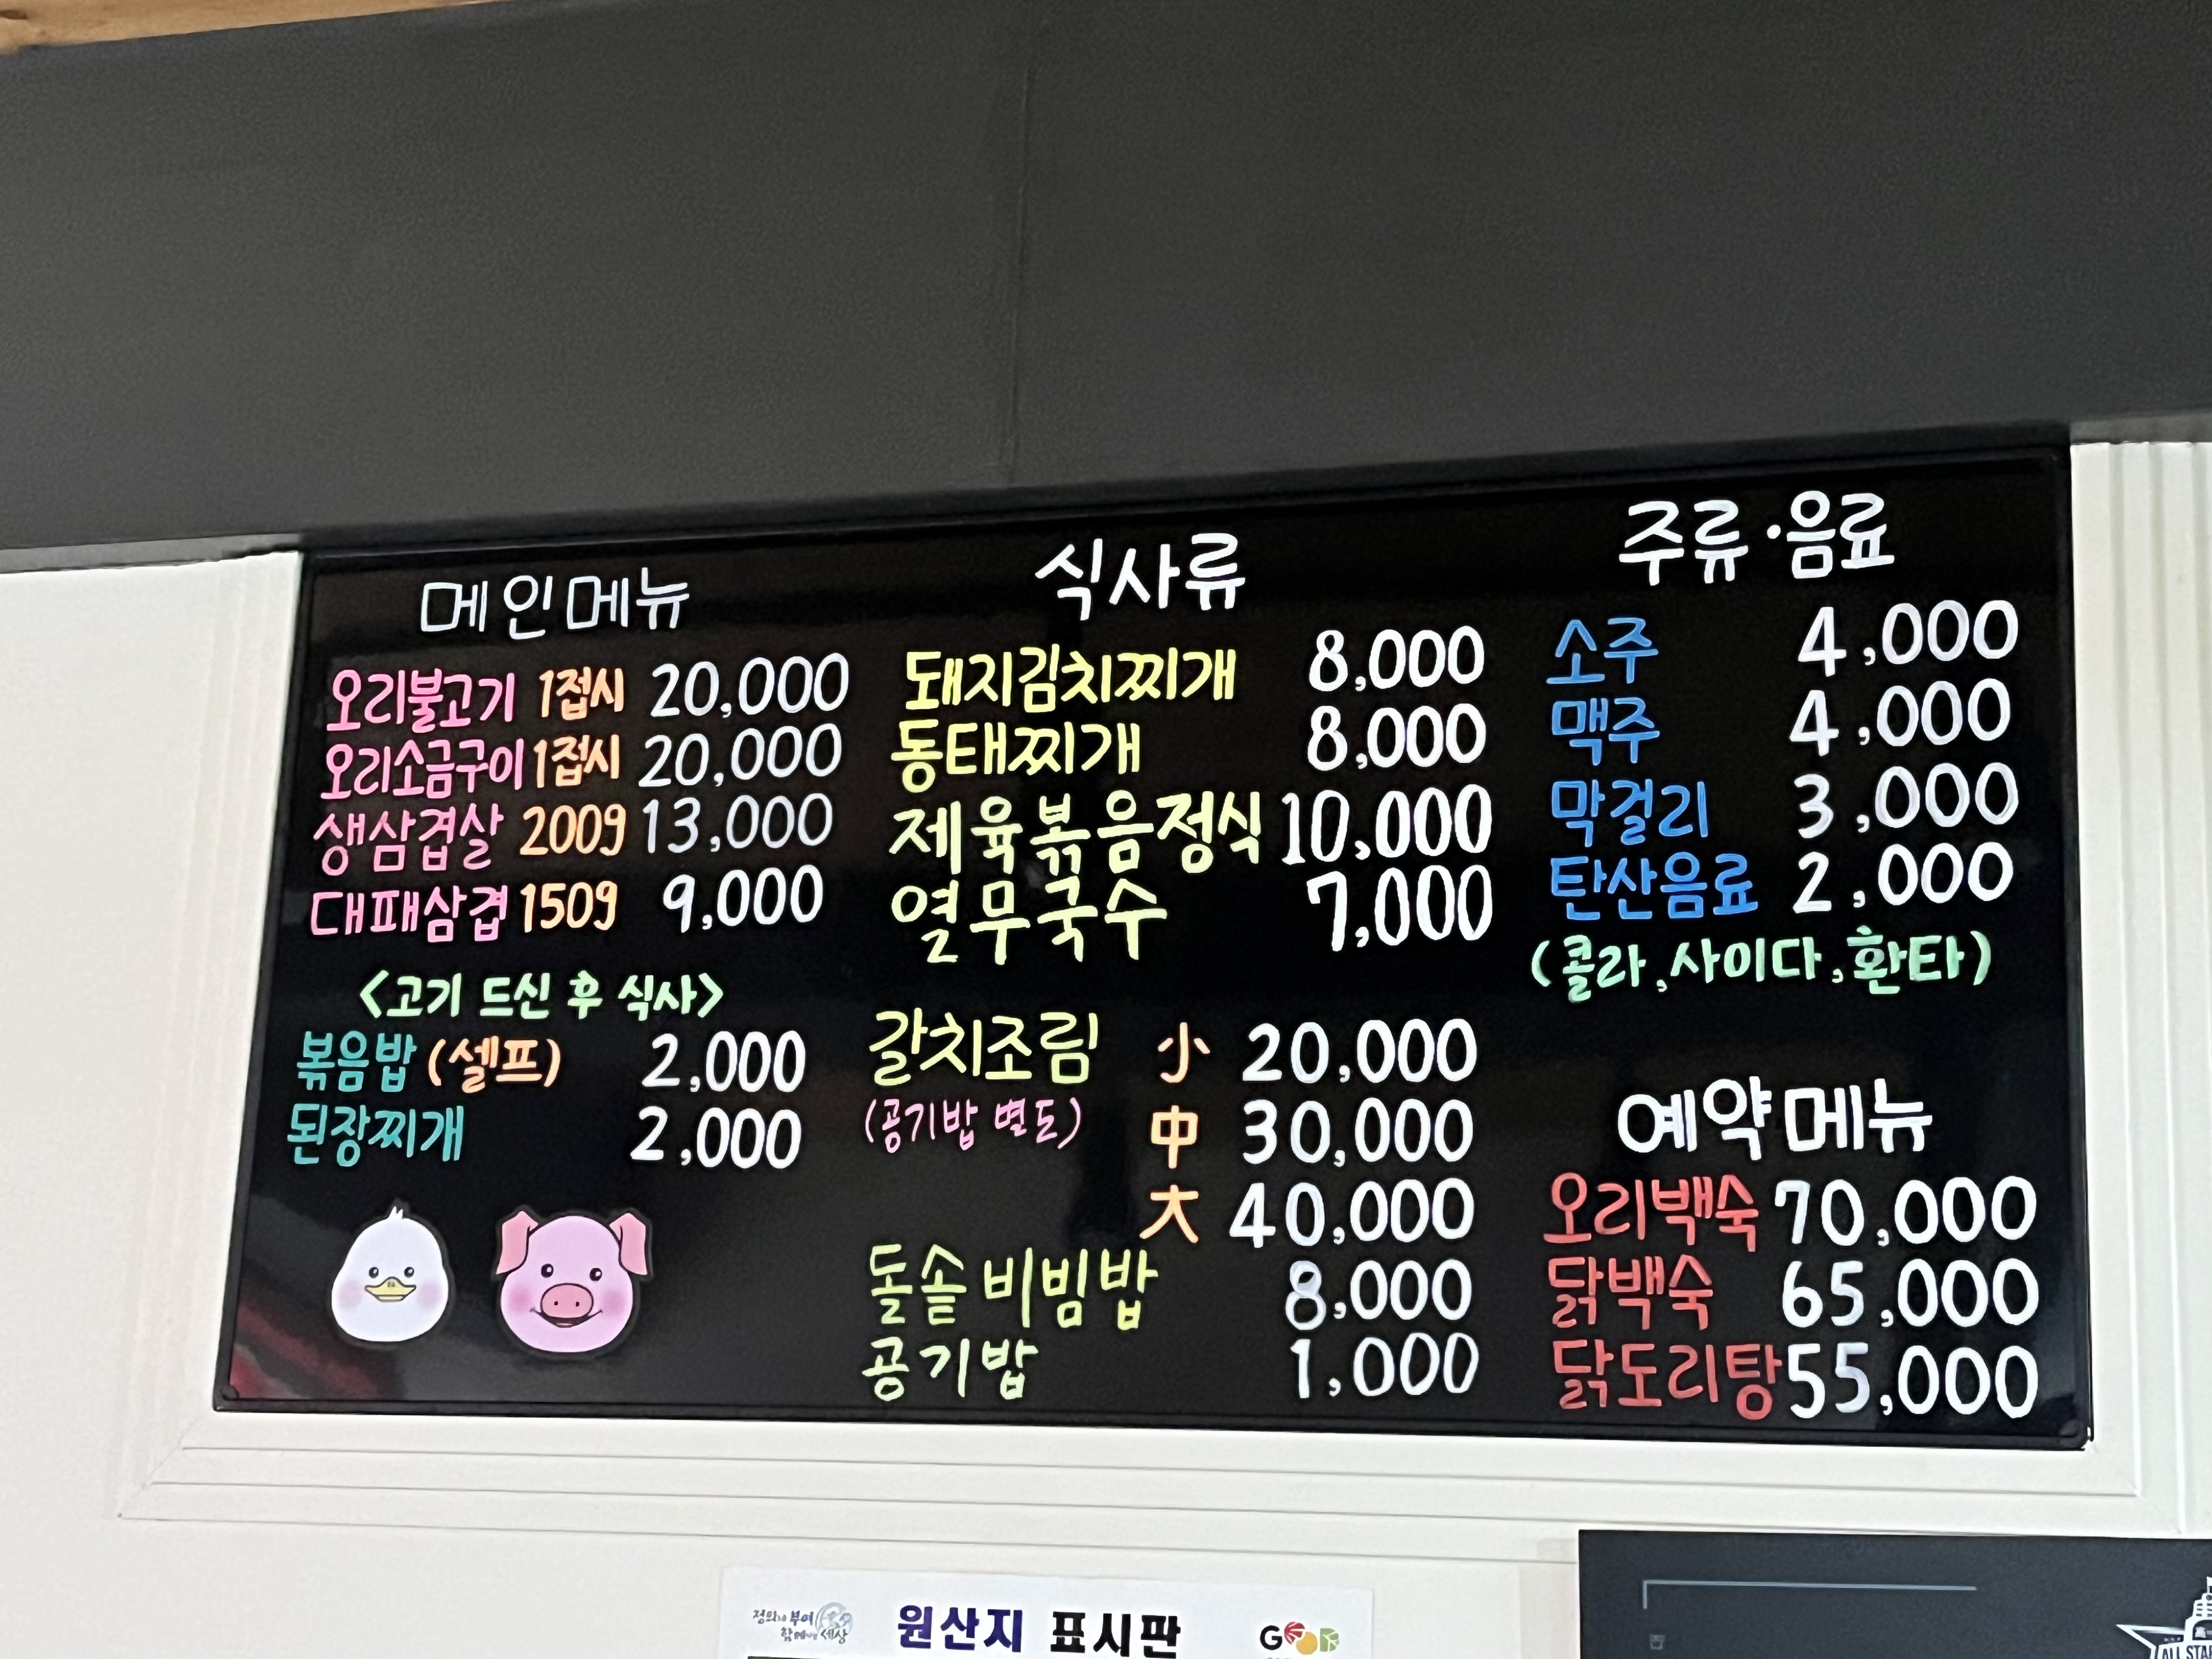 메인메뉴
오리불고기 1접시 20,000
오리소금구이 1접시 20,000
생삼겹살 200g 13,000
대패삼겹 150g 9,000
<고기 드신 후 식사>
볶음밥 (셀프) 2,000
된장찌개 2,000
식사류
돼지김치찌개 8,000
동태찌개 8,000
제육볶음정식 10,000
열무국수 7,000
갈치조림 小 20,000
(공기밥 별도) 中 30,000
大 40,000
돌솥비빔밥 8,000
공기밥 1,000
주류·음료
소주 4,000
맥주 4,000
막걸리 3,000
탄산음료 2,000
(콜라, 사이다, 환타)
예약메뉴
오리백숙 70,000
닭백숙 65,000
닭도리탕 55,000
원산지 표시판
GOOD
ALL STAR